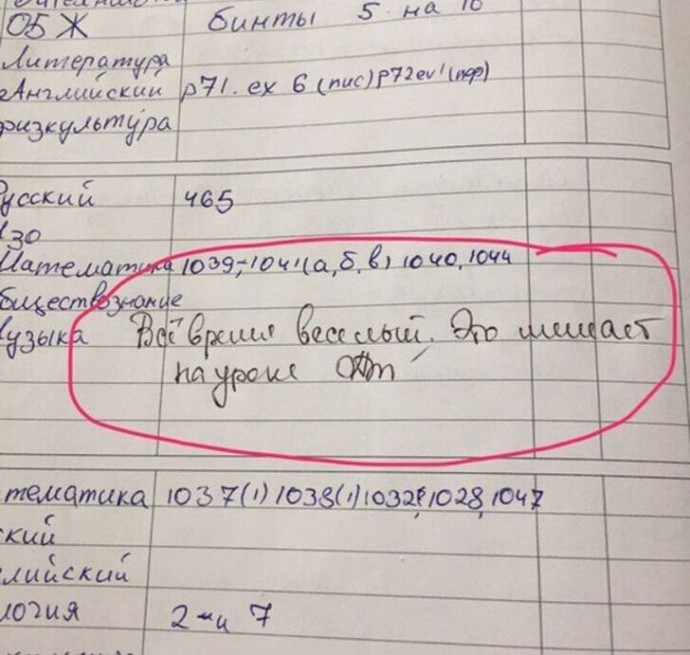 ОБЖ бинты 5 на 10
Литература
Английский р71. ex 6 (пис) р72 ex1 (пер)
физкультура
усский 465
ИЗО
Математика 1039, 1041 (а, б, в) 1040, 1044
бществознание
узыка Всё время веселый. Это мешает
на уроке
тематика 1037(1) 1038(1) 1032, 1028, 1047
кий
лийский
логия 2 и 7